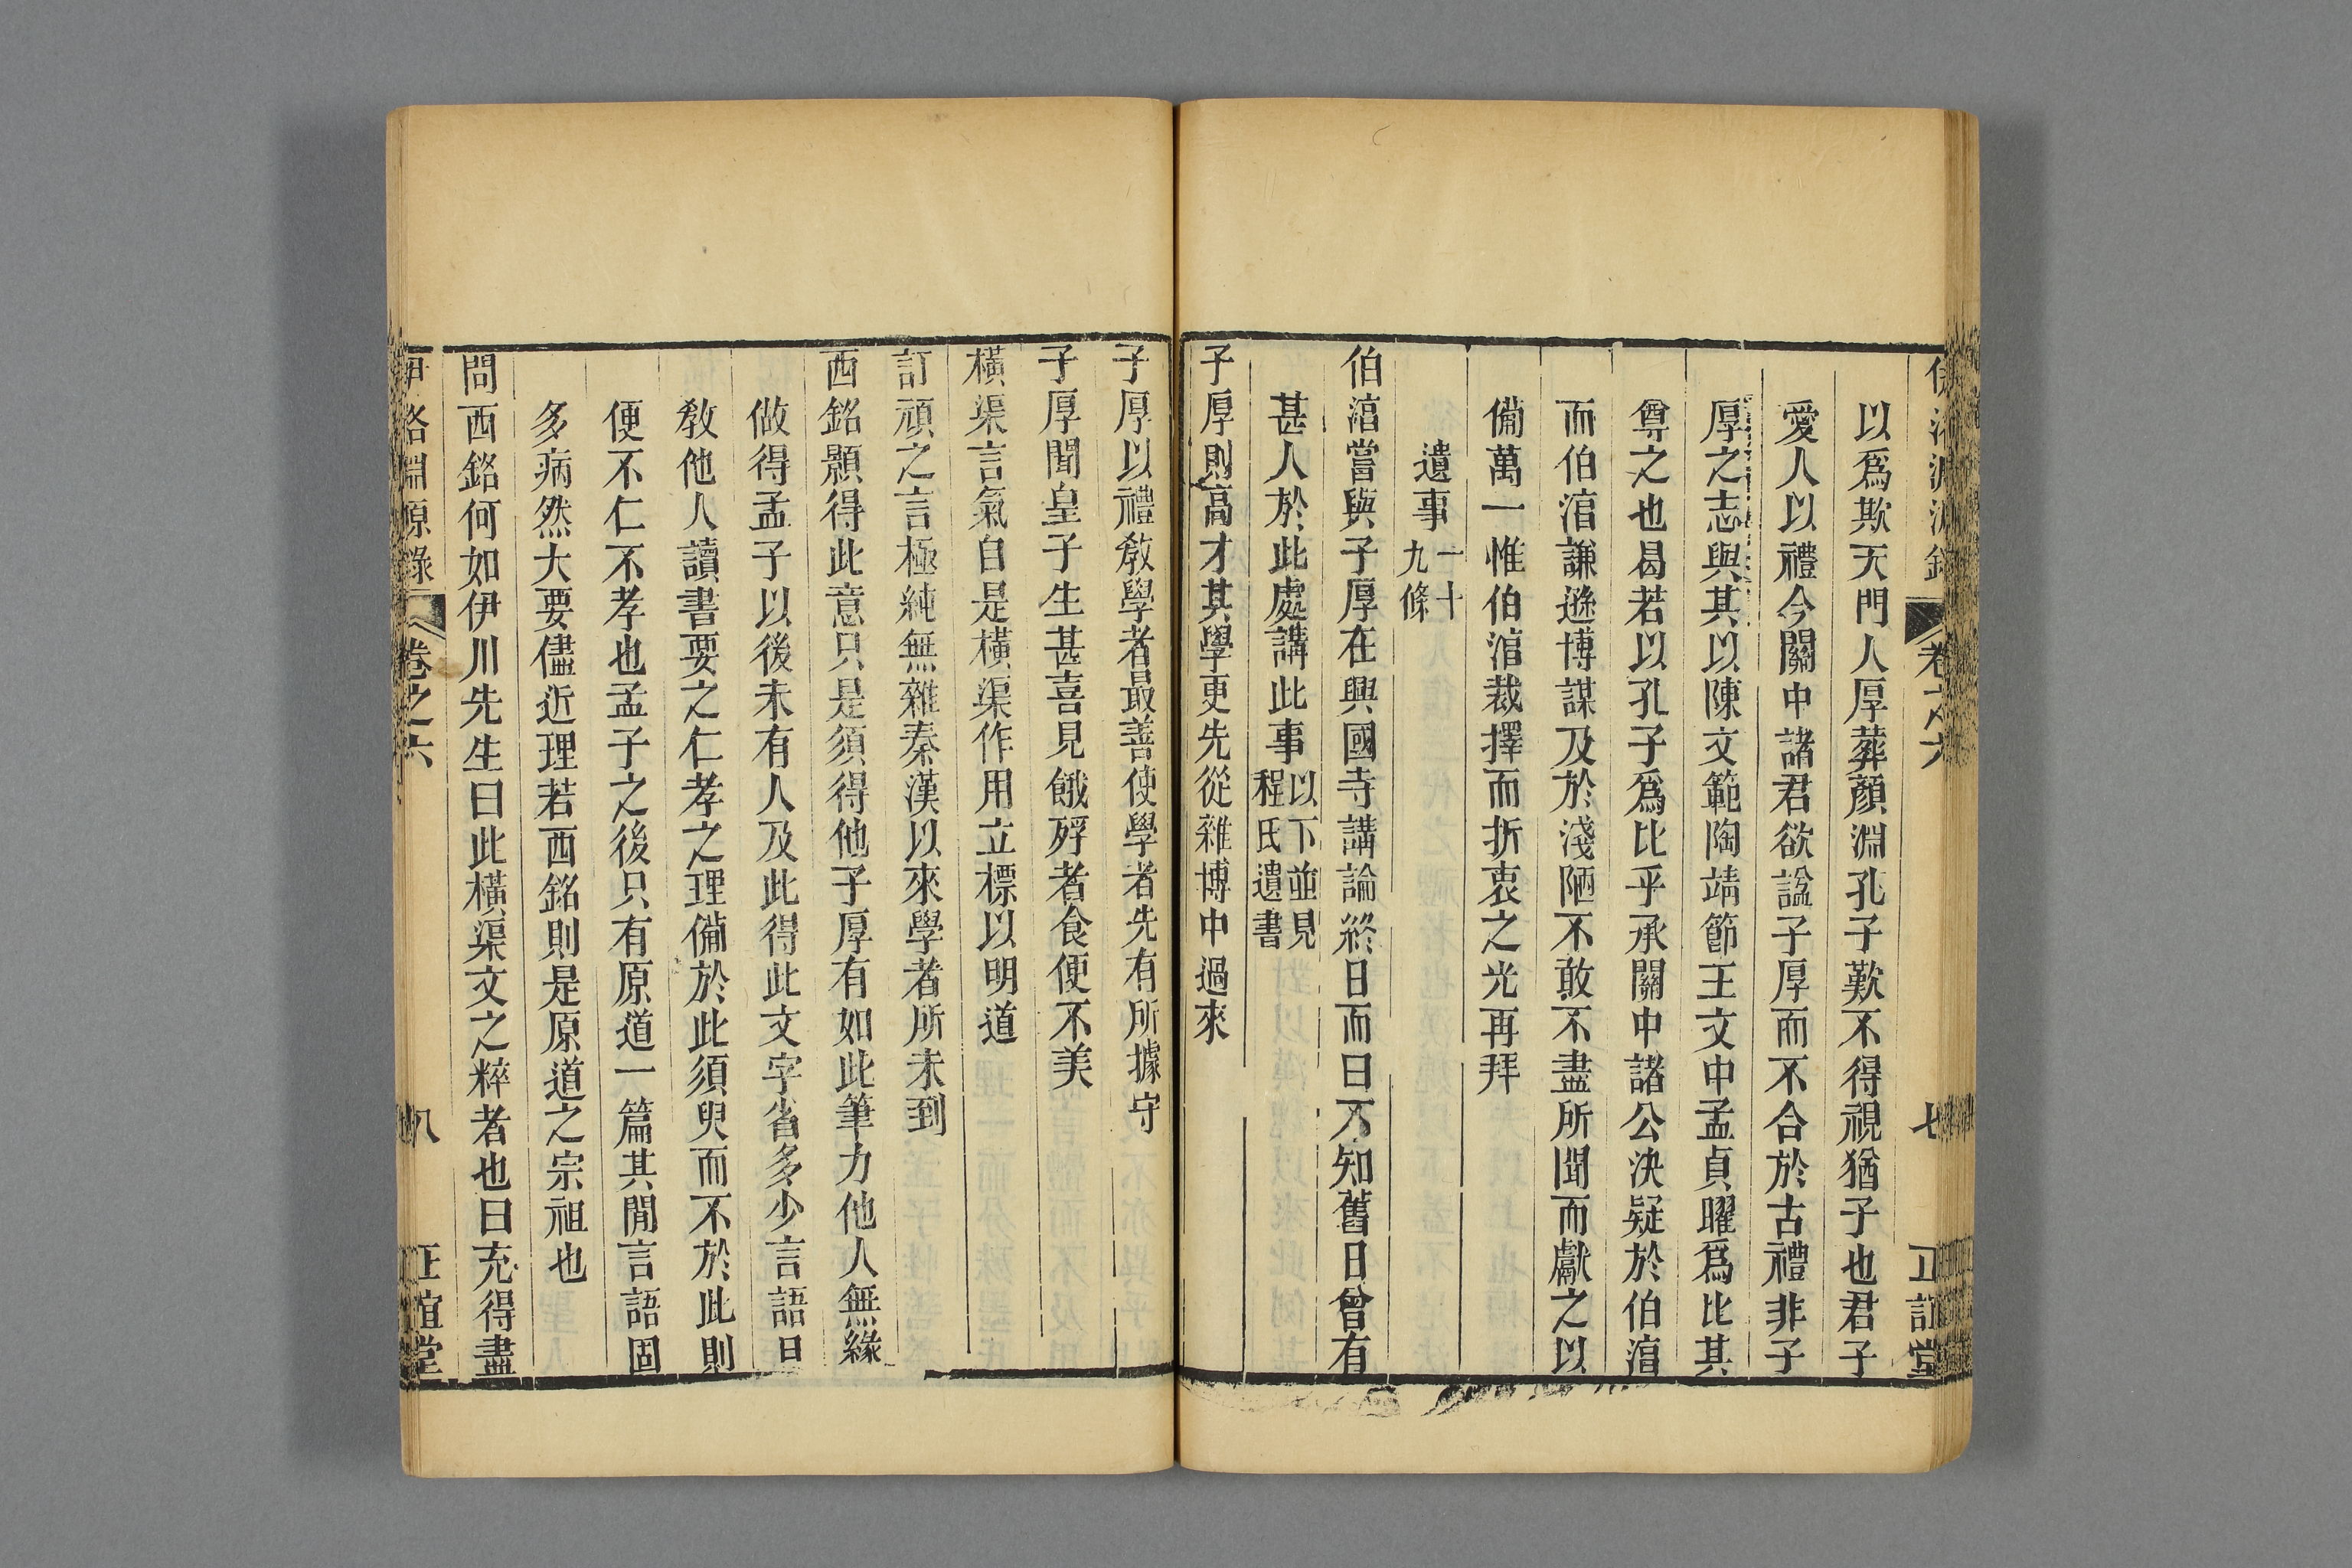 以爲欺天門人厚葬顏淵孔子歎不得視猶子也君子
愛人以禮今關中諸君欲諡子厚而不合於古禮非子
厚之志與其以陳文範陶靖節王文中孟貞曜爲比其
尊之也曷若以孔子爲比乎承關中諸公決疑於伯湻
而伯湻謙遜博謀及於淺陋不敢不盡所聞而獻之以
備萬一惟伯湻裁擇而折衷之光再拜
遺事一十九條
伯湻嘗與子厚在興國寺講論終日而曰不知舊日曾有
甚人於此處講此事以下並見程氏遺書
子厚則高才其學更先從雜博中過來
子厚以禮敎學者最善使學者先有所據守
子厚聞皇子生甚喜見餓殍者食便不美
橫渠言氣自是橫渠作用立標以明道
訂頑之言極純無雜秦漢以來學者所未到
西銘顥得此意只是須得他子厚有如此筆力他人無緣
做得孟子以後未有人及此得此文字省多少言語且
敎他人讀書要之仁孝之理備於此須臾而不於此則
便不仁不孝也孟子之後只有原道一篇其閒言語固
多病然大要儘近理若西銘則是原道之宗祖也
問西銘何如伊川先生曰此橫渠文之粹者也曰充得盡
伊洛淵源錄 卷之六 八 正誼堂